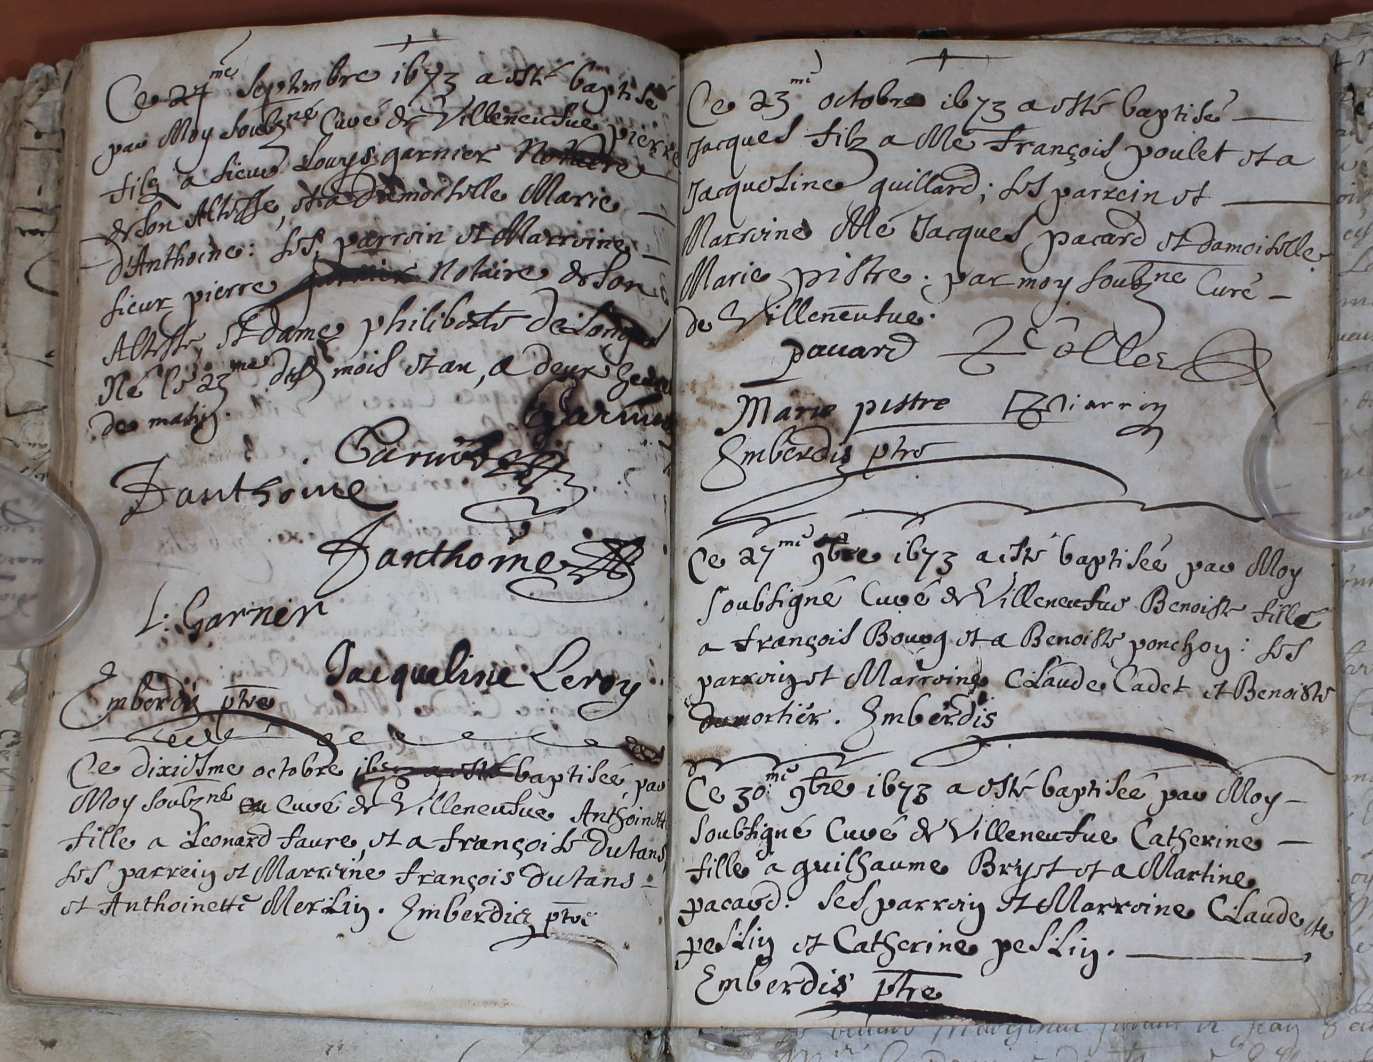 Ce 27me septembre 1673 a esté baptisé
par Moy soubzné Curé de Villeneufve pierre
filz a sieur Louys garnier Notaire
de son Altesse, et a Damoiselle Marie
d'Anthoine: ses parroin et Marroine
sieur pierre garnier Notaire de son
Altesse, et dame philiberte de
Né le 23me dud mois et an, a deux heures
de matin.
Garnier
Garnier
Danthoine
Danthoine
L. Garnier
Jacqueline Leroy
Emberdis ptre
Ce dixiesme octobre 1673 a esté baptisée, par
Moy soubzné Curé de Villeneufve Anthoinette
fille a Leonard faure, et a françoise dutans
ses parrein et Marreine françois dutans
et Anthoinette Merlin. Emberdis ptre
Ce 23me octobre 1673 a esté baptisé
Jacques filz a Me françois poulet et a
Jacqueline quillard; ses parrein et
Marreine Me Jacques pacard et damoiselle
Marie pistre; par moy soubzne Curé
de Villeneufve.
pavard
Marie pistre
Emberdis ptre
Ce 27me 9bre 1673 a esté baptisée par Moy
soubsigné Curé de Villeneufve Benoiste fille
a françois Bourg et a Benoiste ponchon: ses
parroin et Marroine Claude Cadet et Benoiste
dumortier. Emberdis
Ce 30me 9bre 1673 a esté baptisée par Moy
soubsigné Curé de Villeneufve Catherine
fille a guilhaume Bryet et a Martine
pacard. ses parroin et Marroine Claude
peslin et Catherine peslin.
Emberdis ptre